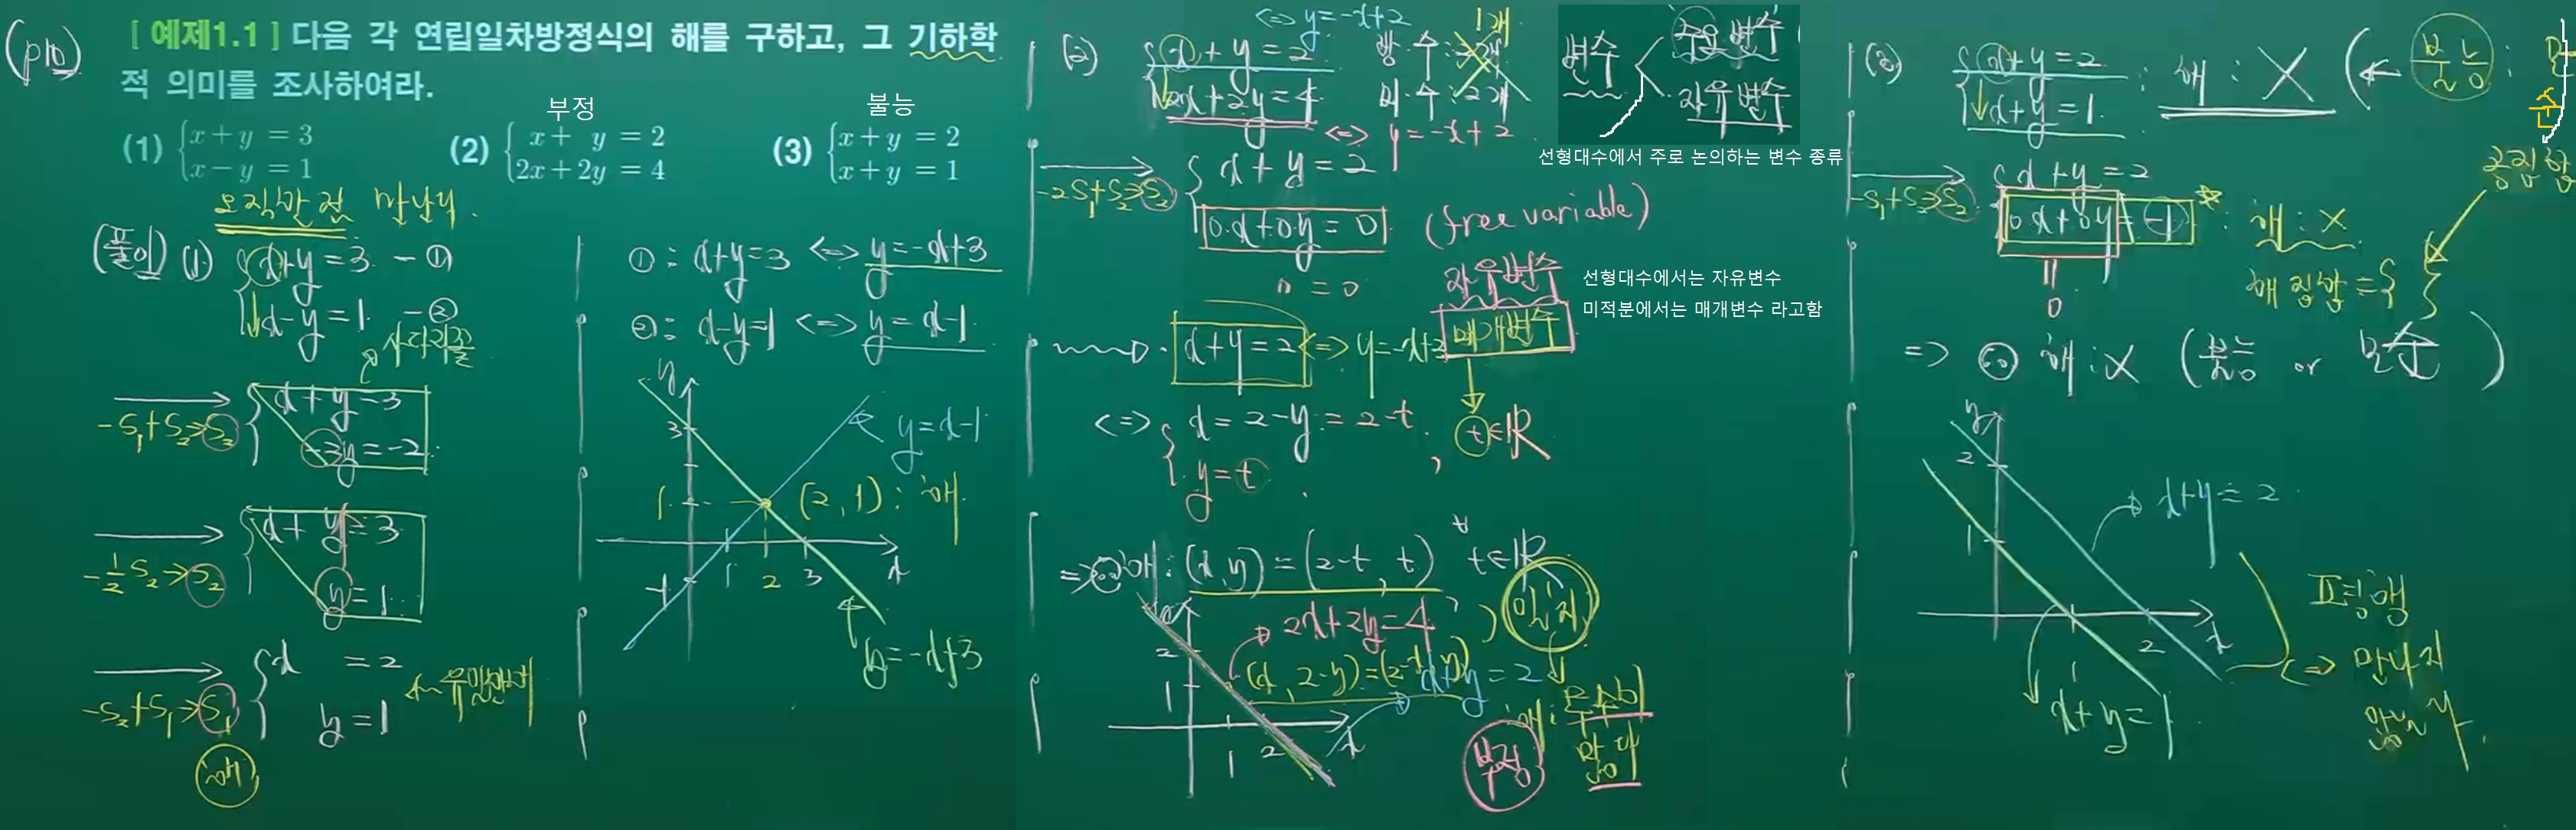 (p10)
[ 예제1.1 ] 다음 각 연립일차방정식의 해를 구하고, 그 기하학
적 의미를 조사하여라.
부정
불능
(1) { x + y = 3
x − y = 1
(2) { x + y = 2
2x + 2y = 4
(3) { x + y = 2
x + y = 1
오직 한 점 만난다.
(풀이) (1) { x+y=3 - ①
x-y=1 - ②
사다리꼴
-S₁+S₂→S₂ { x+y=3
-2y=-2
-½S₂→S₂ { x+y=3
y=1
-S₂+S₁→S₁ { x =2
y=1
← 유일한 해
해
① : x+y=3 <=> y=-x+3
② : x-y=1 <=> y=x-1
y
3
y=x-1
1
(2, 1) : 해
-1
1 2 3 x
y=-x+3
<=> y=-x+2
(2) { x+y=2
2x+2y=4
<=> y=-x+2
방·수 : 2개
1개
미·수 : 2개
변수
주요 변수
자유 변수
선형대수에서 주로 논의하는 변수 종류
-2S₁+S₂→S₂ { x+y=2
0·x+0·y=0
0=0
(free variable)
자유변수
매개변수
선형대수에서는 자유변수
미적분에서는 매개변수 라고함
x+y=2 <=> y=-x+2
<=> { x=2-y=2-t
y=t
, t∈ℝ
=> ∴ 해 : (x,y)=(2-t, t) , ∀t∈ℝ
일치
2x+2y=4
(x, 2-x)=(2-y, y)
x+y=2
y
2
1
1 2 x
해 : 무수히
많다
부정
(3) { x+y=2
x+y=1
: 해 : X (← 불능 :
순
공집합
-S₁+S₂→S₂ { x+y=2
0·x+0·y=-1
0
: 해 : X
해집합={ }
=> ∴ 해 : X (불능 or 모순)
y
2
1
x+y=2
1 2 x
x+y=1
평행
<=> 만나지
않는다.